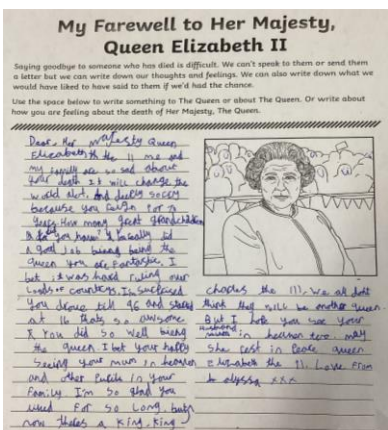 My Farewell to Her Majesty,
Queen Elizabeth II
Saying goodbye to someone who has died is difficult. We can't speak to them or send them
a letter but we can write down our thoughts and feelings. We can also write down what we
would have liked to have said to them if we'd had the chance.
Use the space below to write something to The Queen or about The Queen. Or write about
how you are feeling about the death of Her Majesty, The Queen.
Dear, Her majesty Queen
Elizabeth the II me and
my family are so sad about
your death It will change the
world alot. And deeply sorry
because you
How many great grandchildren
you have? You basically did
a good job being the
queen You are Fantastic. I
bet it was hard ruling our
Lands or countrys. Im surprised
You drove till 96 and started
at 16 thats so awsome
You did so well being
the queen I bet your happy
seeing your mum in heaven
and other in your
family. I'm so glad you
lived For so long. but
now theres a king. king
charles the III. We all dont
think they will be another queen.
But I hope you see your
husband in heaven too. may
she rest in Peace queen
Elizabeth the II. Love From
alyssa xxx